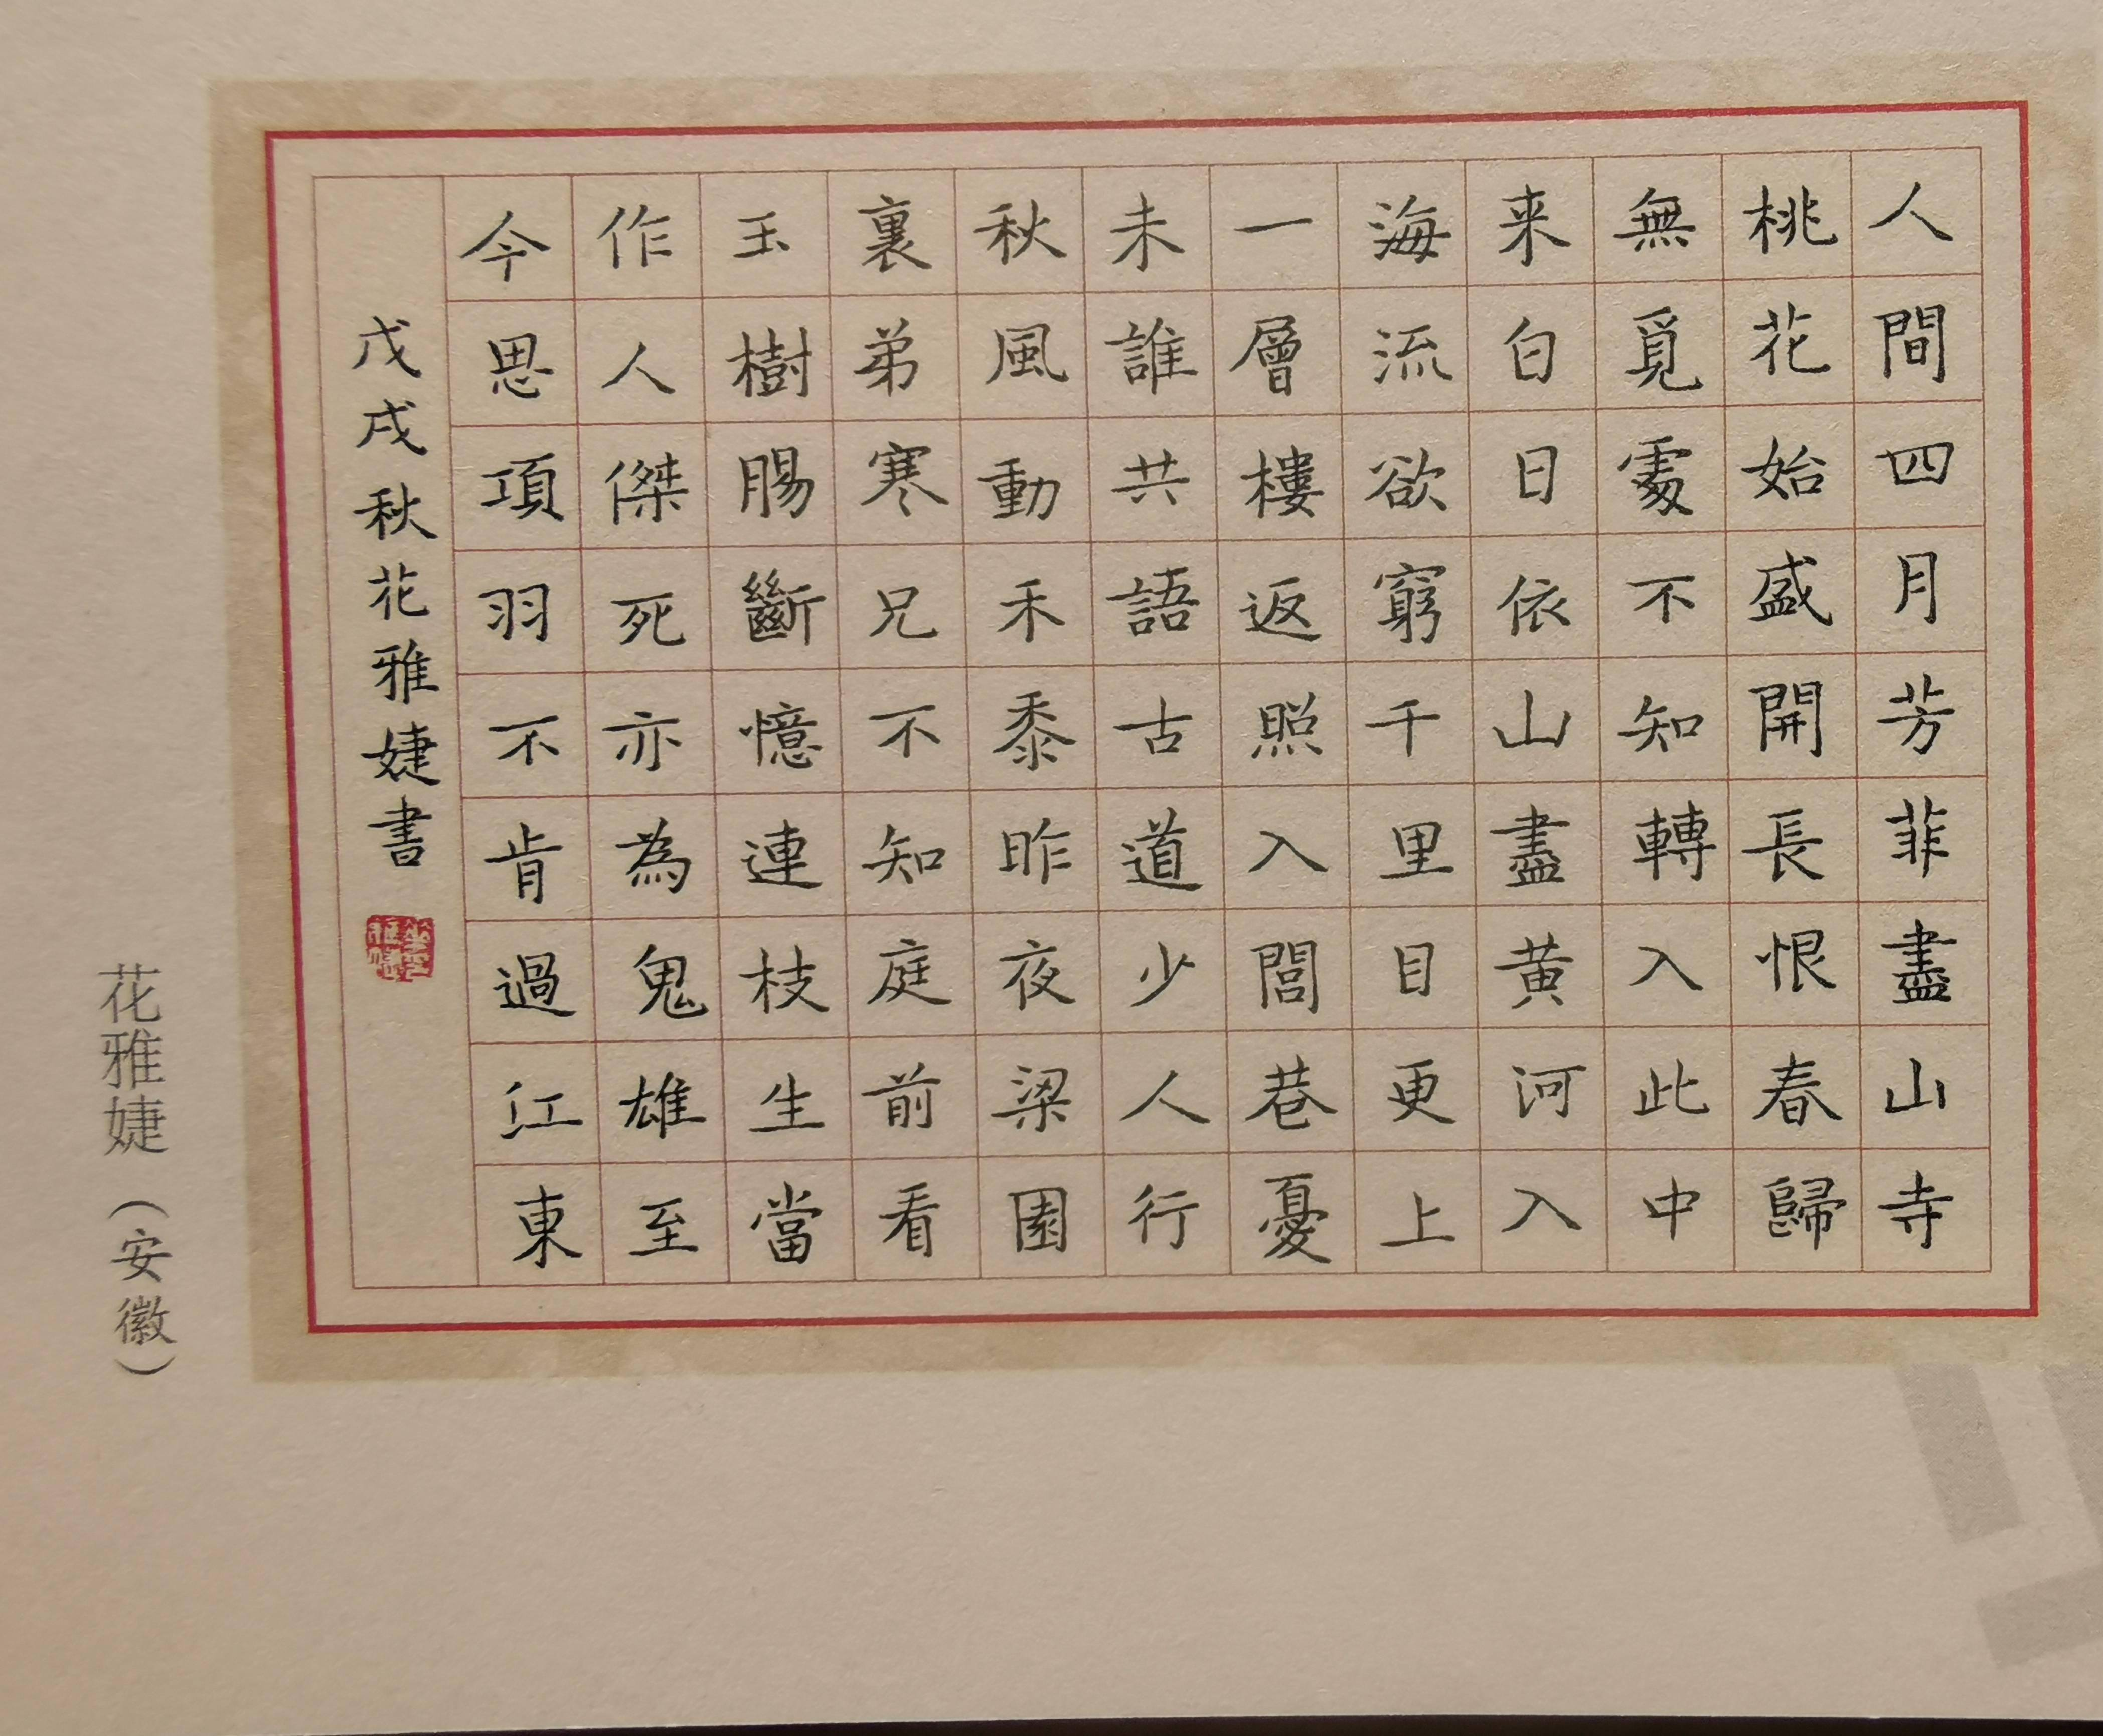 人間四月芳菲盡山寺
桃花始盛開長恨春歸
無覓處不知轉入此中
来白日依山盡黄河入
海流欲窮千里目更上
一層樓返照入閭巷憂
未誰共語古道少人行
秋風動禾黍昨夜梁園
裏弟寒兄不知庭前看
玉樹腸斷憶連枝生當
作人傑死亦為鬼雄至
今思項羽不肯過江東
戊戌秋花雅婕書
花雅婕（安徽）